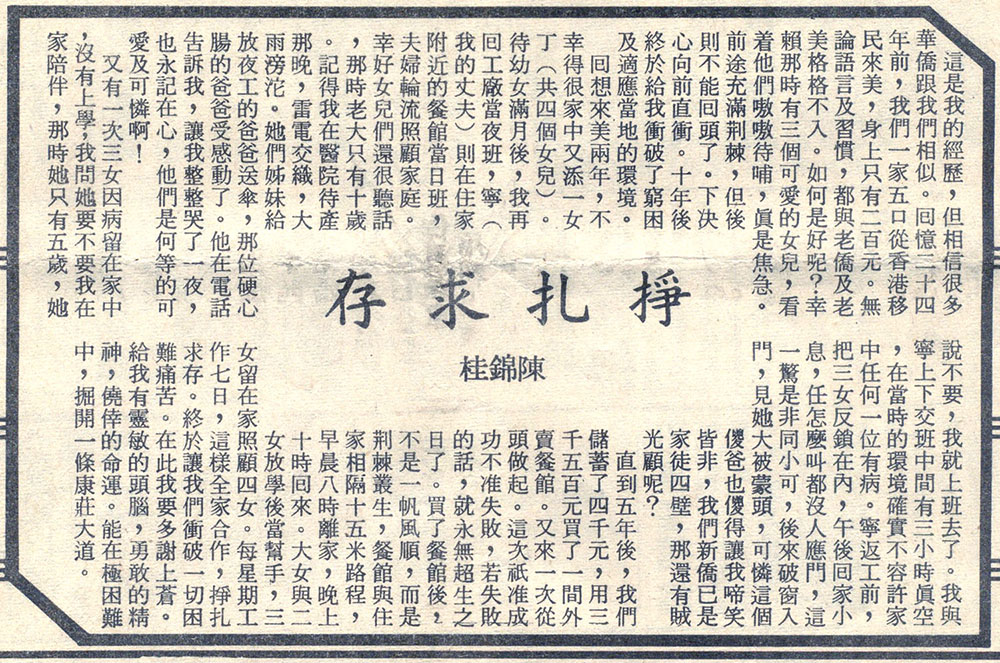 掙扎求存
陳錦桂
這是我的經歷，但相信很多
華僑跟我們相似。回憶三十四
年前，我們一家五口從香港移
民來美，身上只有二百元。無
論語言及習慣，都與老僑及老
美格格不入。如何是好呢？幸
賴那時有三個可愛的女兒，看
着他們嗷嗷待哺，眞是焦急。
前途充滿荆棘，但後
則不能回頭了。下决
心向前直衝。十年後
終於給我衝破了窮困
及適應當地的環境。
回想來美兩年，不
幸得很家中又添一女
丁（共四個女兒）。
待幼女滿月後，我再
回工廠當夜班，寧（
我的丈夫）則在住家
附近的餐館當日班，
夫婦輪流照顧家庭。
幸好女兒們還很聽話
，那時老大只有十歲
。記得我在醫院待產
那晚，雷電交織，大
雨滂沱。她們姊妹給
放夜工的爸爸送傘，那位硬心
腸的爸爸受感動了。他在電話
告訴我，讓我整整哭了一夜，
也永記在心，他們是何等的可
愛及可憐啊！
又有一次三女因病留在家中
，沒有上學，我問她要不要我在
家陪伴，那時她只有五歲，她
說不要，我就上班去了。我與
寧上下交班中間有三小時眞空
，在當時的環境確實不容許家
中任何一位有病。寧返工前，
把三女反鎖在內，午後回家小
息，任怎麼叫都沒人應門，這
一驚是非同小可，後來破窗入
門，見她大被蒙頭，可憐這個
儍爸也儍得讓我啼笑
皆非，我們新僑已是
家徒四壁，那還有賊
光顧呢？
直到五年後，我們
儲蓄了四千元，用三
千五百元買了一間外
賣餐館。又來一次從
頭做起。這次祇准成
功不准失敗，若失敗
的話，就永無超生之
日了。買了餐館後，
不是一帆風順，而是
荆棘叢生，餐館與住
家相隔十五米路程，
早晨八時離家，晚上
十時回來。大女與二
女放學後當幫手，三
女留在家照顧四女。每星期工
作七日，這樣全家合作，掙扎
求存。終於讓我們衝破一切困
難痛苦。在此我要多謝上蒼。
給我有靈敏的頭腦，勇敢的精
神，僥倖的命運。能在極困難
中，掘開一條康莊大道。